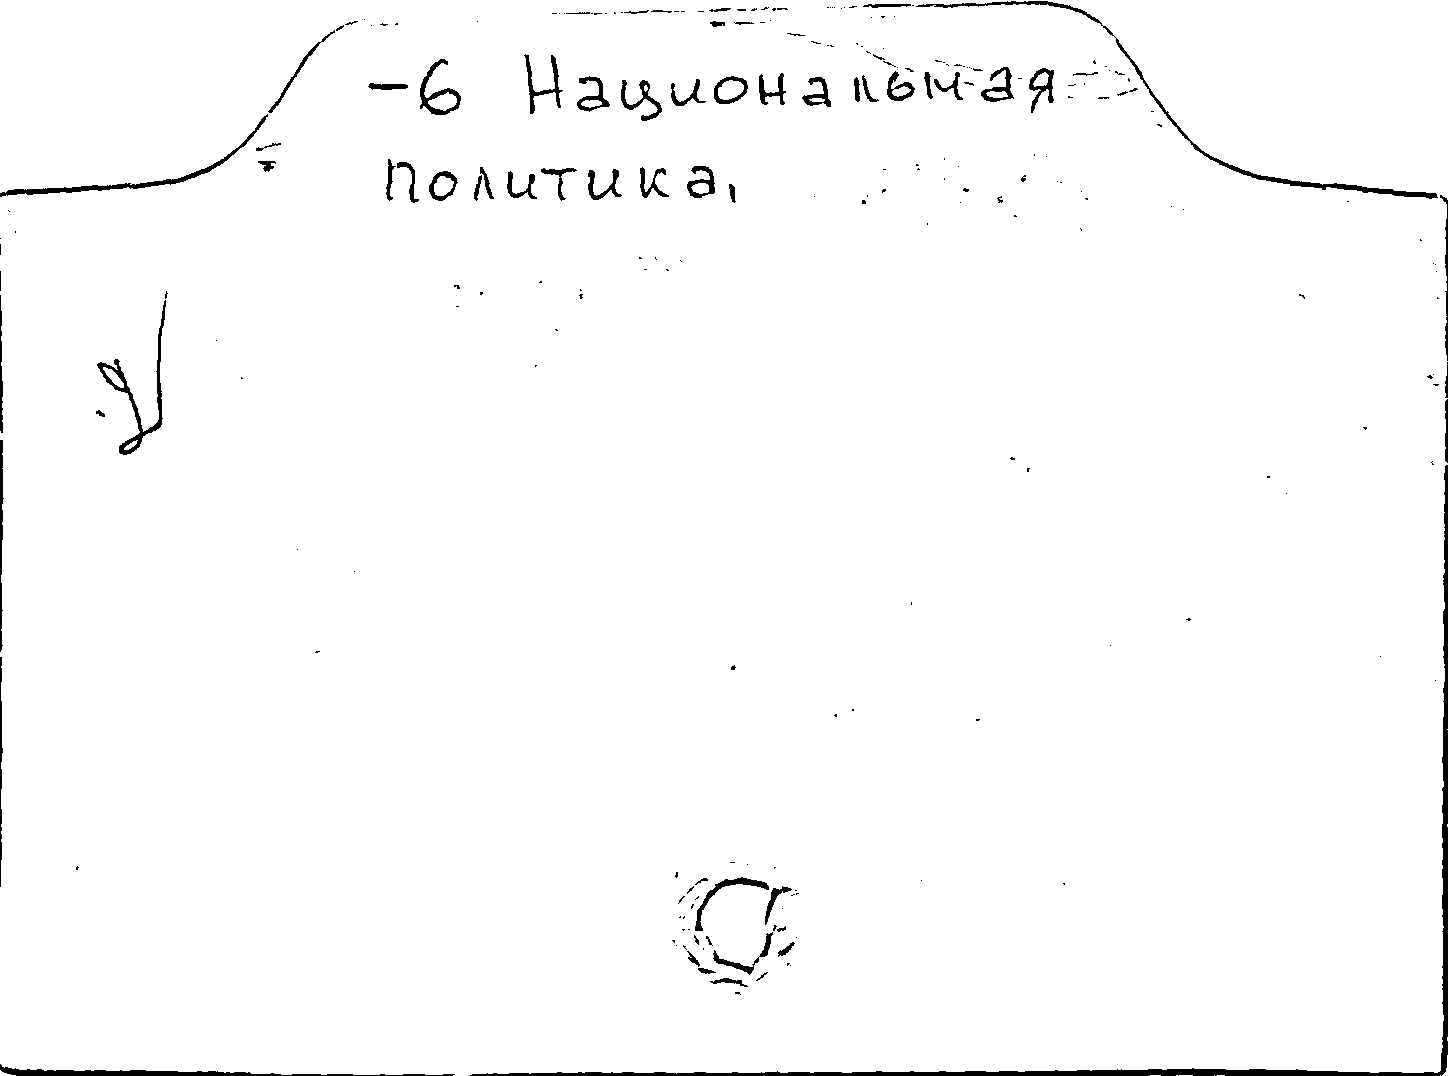 -6 Национальная
политика.